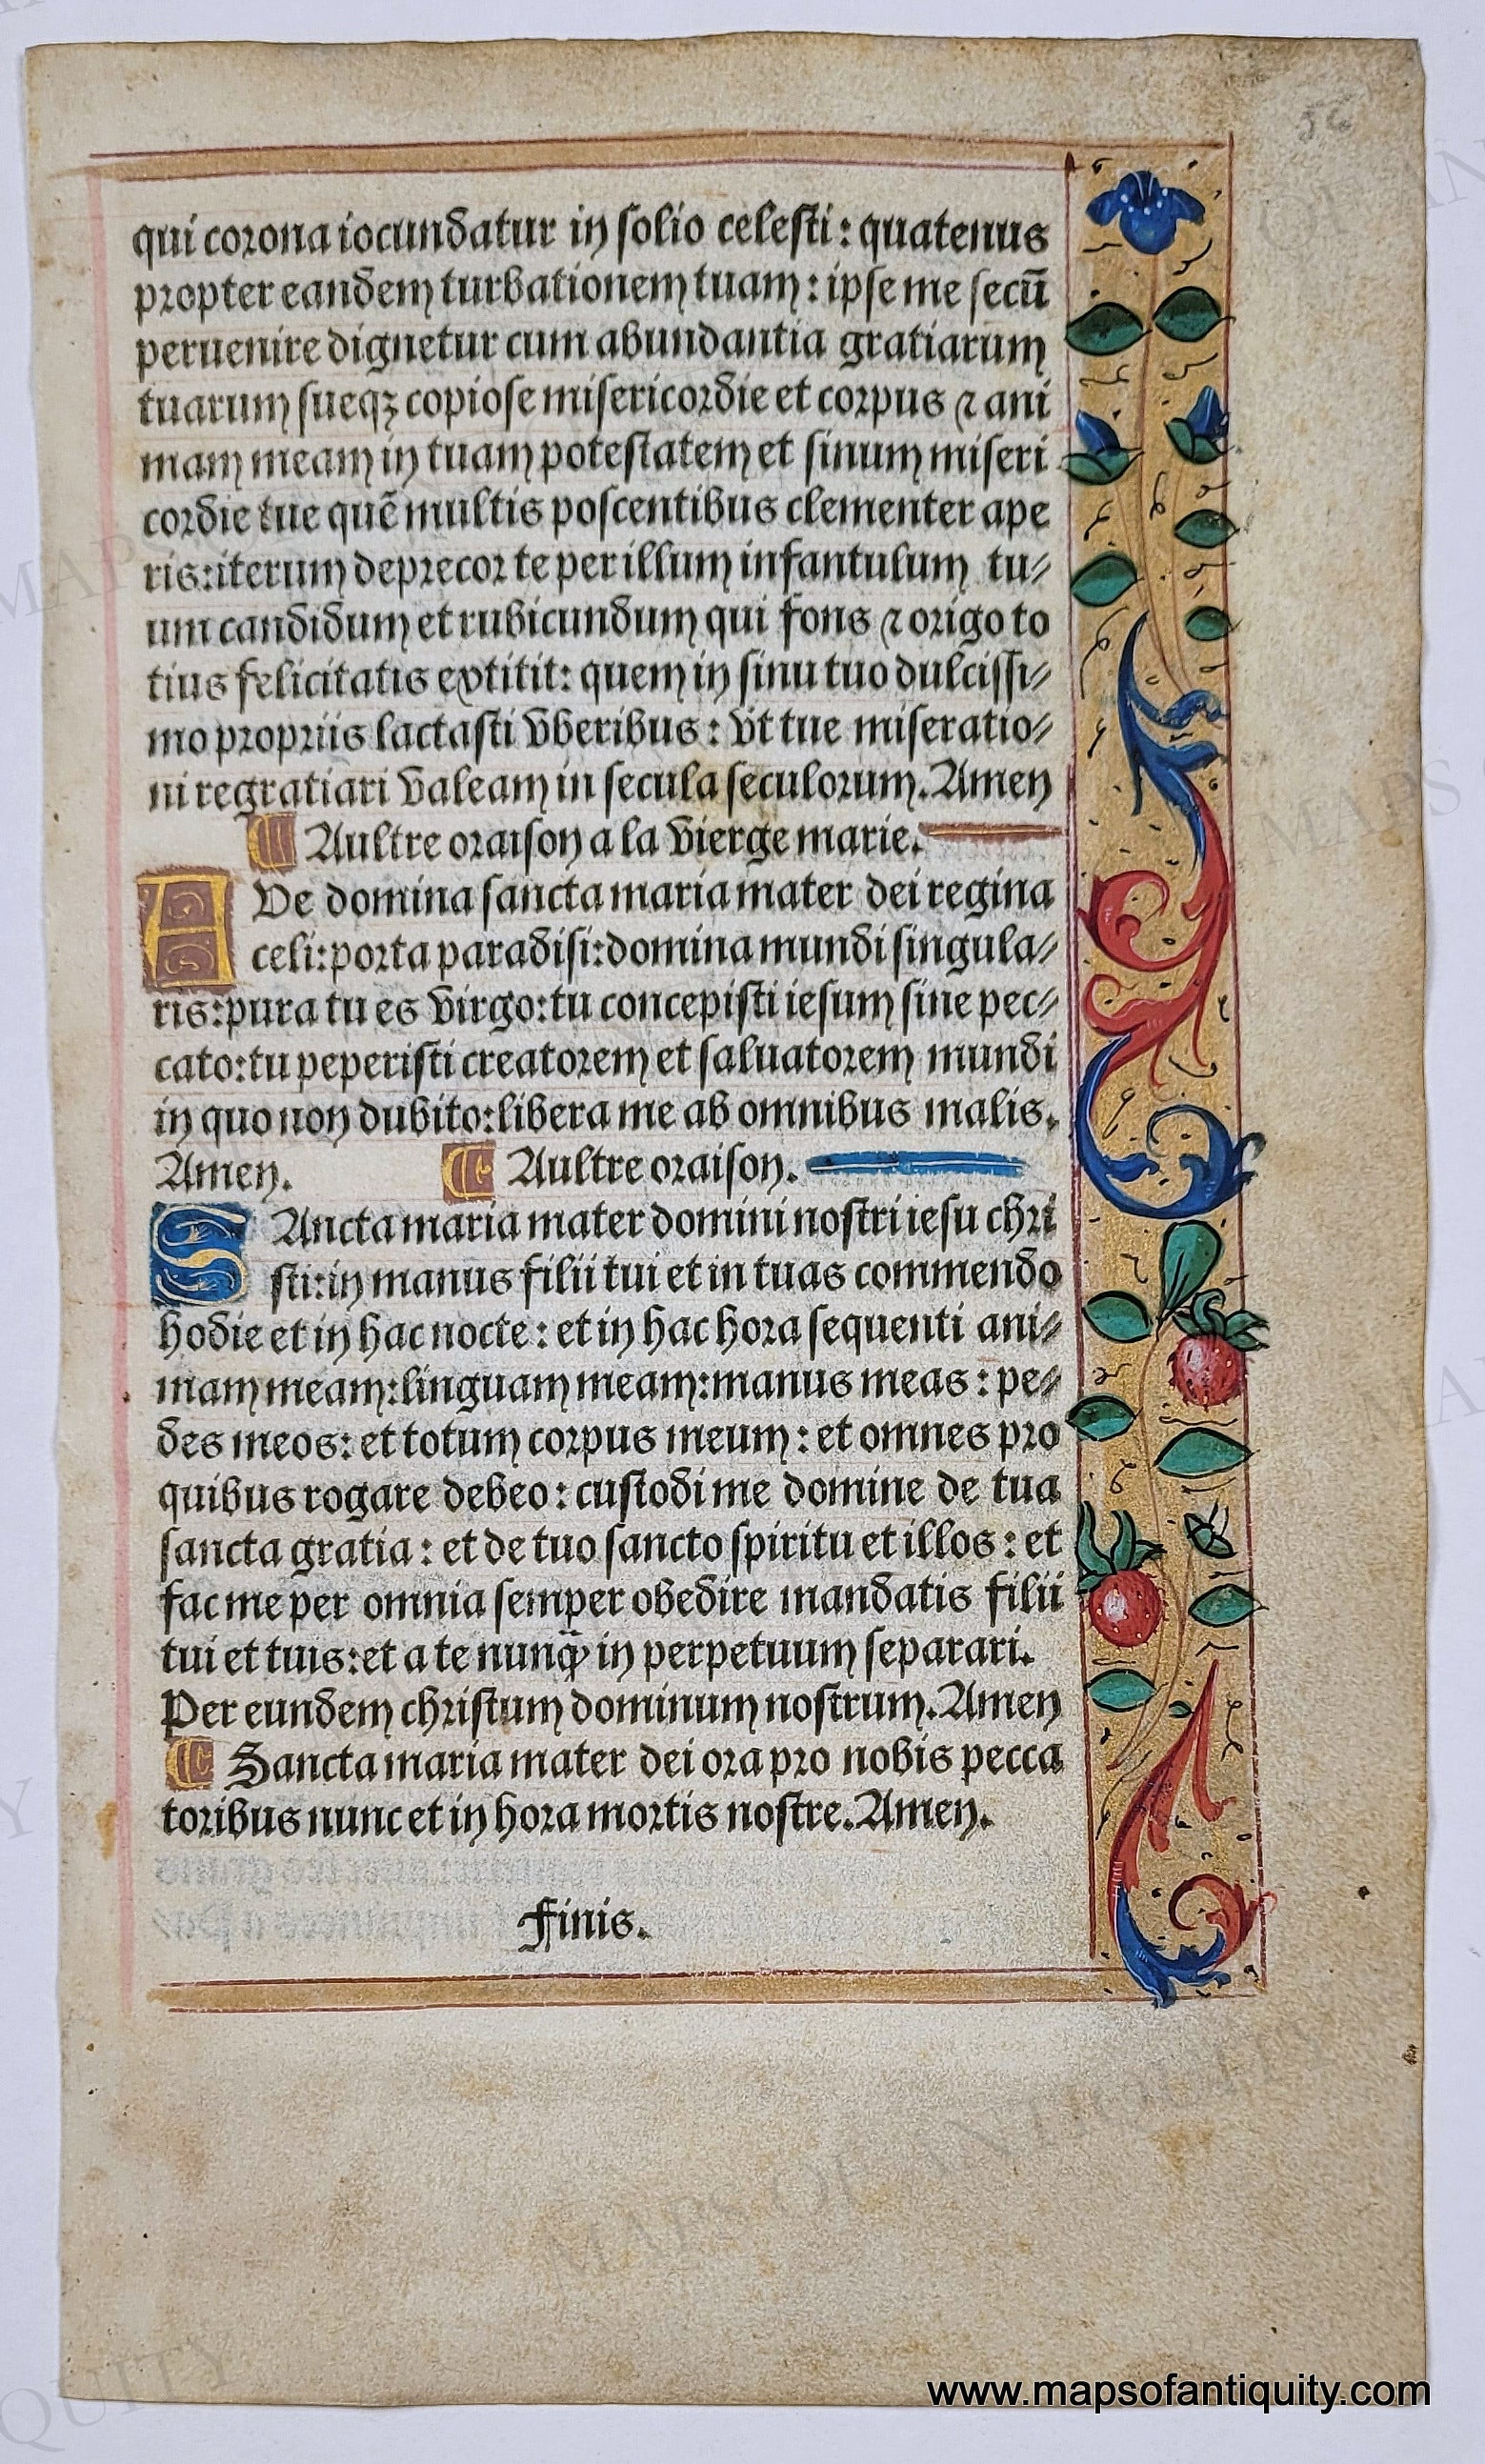 56
qui corona iocundatur in solio celesti : quatenus
propter eandem turbationem tuam : ipse me secū
peruenire dignetur cum abundantia gratiarum
tuarum sueqꝫ copiose misericordie et corpus ⁊ ani
mam meam in tuam potestatem et sinum miseri
cordie tue quē multis poscentibus clementer ape
ris: iterum deprecor te per illum infantulum tu⸗
um candidum et rubicundum qui fons ⁊ origo to
tius felicitatis extitit: quem in sinu tuo dulcissi⸗
mo propriis lactasti vberibus : vt tue miseratio⸗
ni regratiari valeam in secula seculorum. Amen
¶ Aultre oraison a la vierge marie.
AVe domina sancta maria mater dei regina
celi: porta paradisi: domina mundi singula⸗
ris: pura tu es virgo: tu concepisti iesum sine pec⸗
cato: tu peperisti creatorem et saluatorem mundi
in quo non dubito: libera me ab omnibus malis.
Amen. ¶ Aultre oraison.
SAncta maria mater domini nostri iesu chri
sti: in manus filii tui et in tuas commendo
hodie et in hac nocte : et in hac hora sequenti ani⸗
mam meam: linguam meam: manus meas : pe⸗
des meos: et totum corpus meum : et omnes pro
quibus rogare debeo : custodi me domine de tua
sancta gratia : et de tuo sancto spiritu et illos : et
fac me per omnia semper obedire mandatis filii
tui et tuis: et a te nunq̄ in perpetuum separari.
Per eundem christum dominum nostrum. Amen
¶ Sancta maria mater dei ora pro nobis pecca
toribus nunc et in hora mortis nostre. Amen.
Finis.
www.mapsofantiquity.com